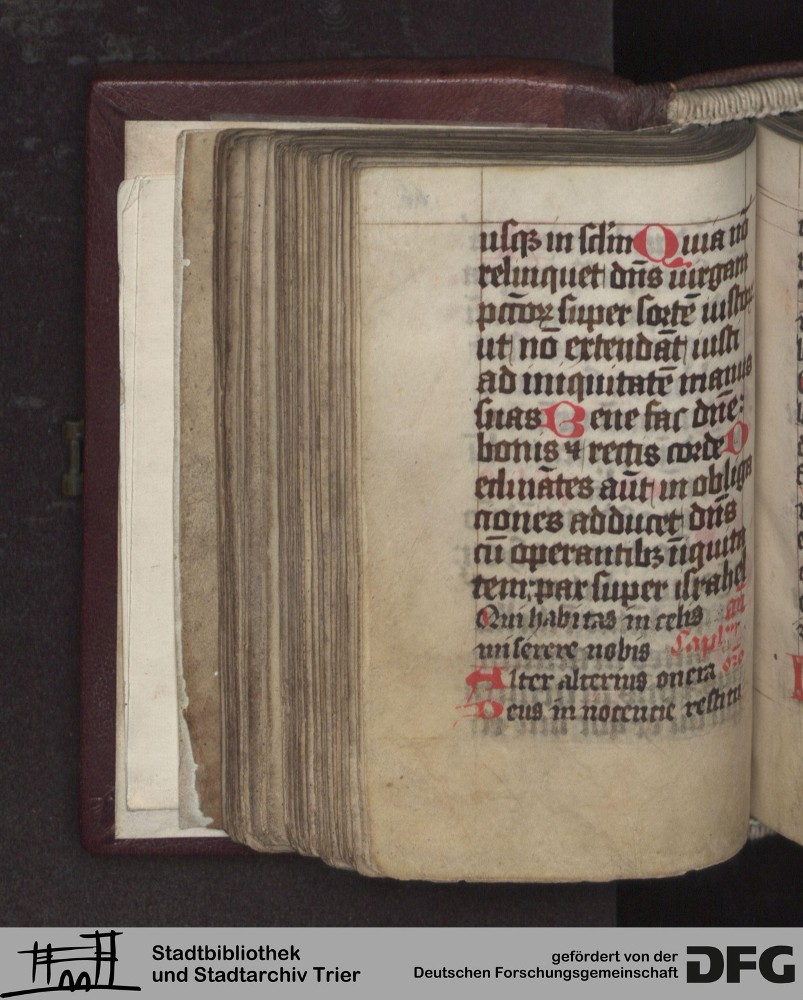 usqꝫ in sclm Quia nō
relinquet dn̄s uirgam
pcc̄oꝝ super sortē iustoꝝ
ut nō extendāt iusti
ad iniquitatē manus
suas Bene fac dn̄e:
bonis ⁊ rectis corde D
eclinātes aūt in obliga
ciones adducet dn̄s
cū operantibꝫ īiquita
tem: pax super israhel
Qui habitas in celis an̄
miserere nobis Capl'm
Alter alterius onera or̄o
Deus in nocencie restitu
Stadtbibliothek
und Stadtarchiv Trier
gefördert von der
Deutschen Forschungsgemeinschaft
DFG